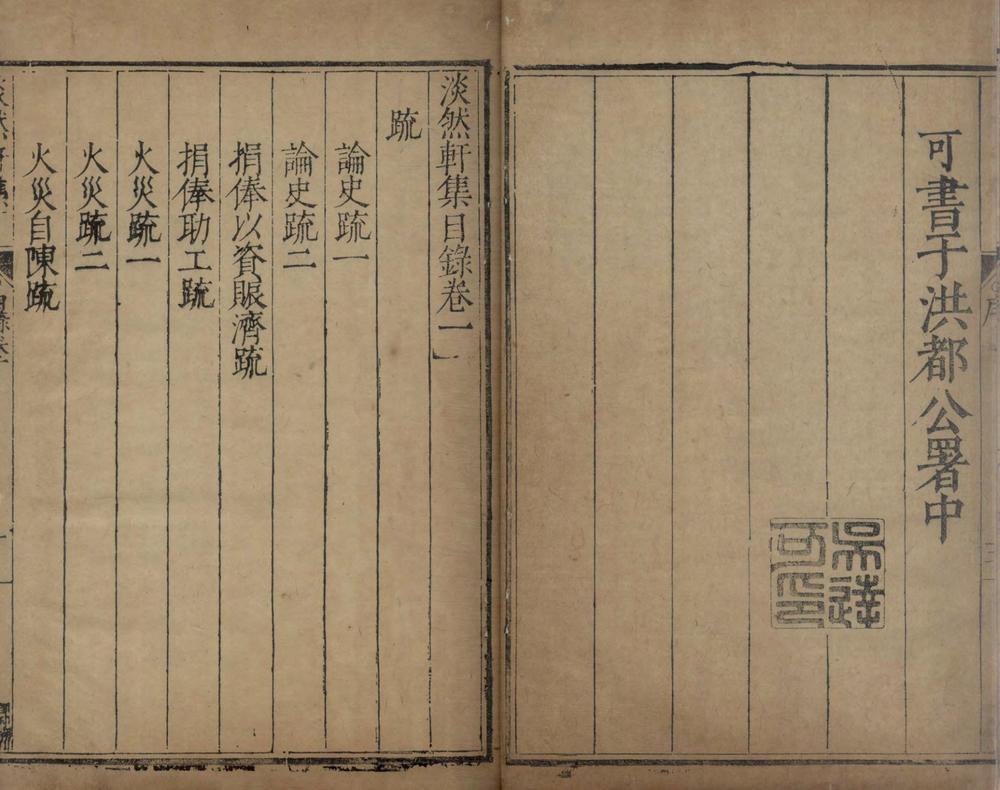 可書于洪都公署中
吳達
可印
序
淡然軒集目錄卷一
疏
論史疏一
論史疏二
捐俸以資賑濟疏
捐俸助工疏
火災疏一
火災疏二
火災自陳疏